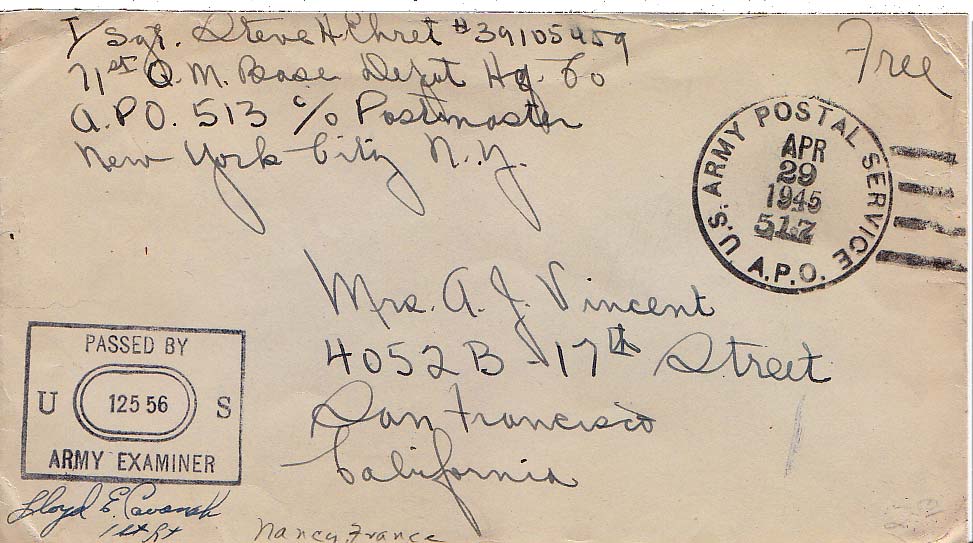 T/Sgt. Steve H Ehret #39105459
71st Q.M. Base Depot Hq. Co
A.P.O. 513 c/o Postmaster
New York City N.Y.
Free
U.S. ARMY POSTAL SERVICE
APR
29
1945
517
A.P.O.
Mrs. A. J. Vincent
4052 B - 17th Street
San Francisco
California
PASSED BY
U 12556 S
ARMY EXAMINER
Lloyd E. Cavanah
1st Lt
Nancy, France